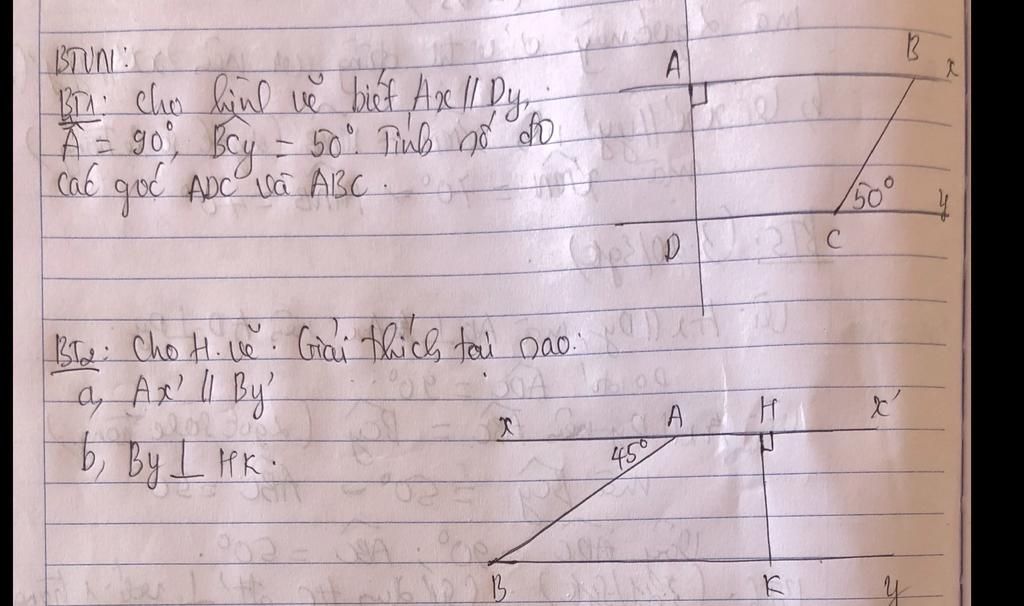 BTVN:
BT1: Cho hình vẽ biết Ax // Dy,
Â = 90°, BĈy = 50°. Tính số đo
các góc ADC và ABC.
A
B
x
50°
y
D
C
BT2: Cho H. vẽ. Giải thích tại sao:
a, Ax' // By'
b, By ⊥ HK.
x
A
H
x'
45°
B
K
y